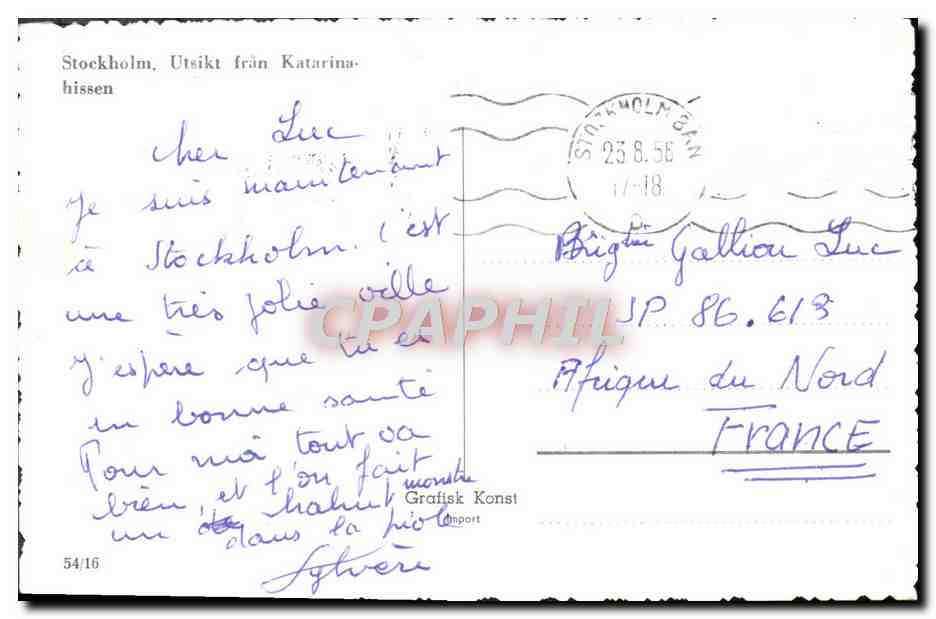 Stockholm, Utsikt från Katarina-
hissen
cher Luc
Je suis maintenant
à Stockholm. C'est
une très jolie ville
J'espère que tu es
en bonne santé
Pour moi tout va
bien, et l'on fait
un chahut monstre
dans la piole
Sylvère
54/16
Grafisk Konst
Import
STOCKHOLM BAN
23.8.56
17-18
Brig Gallion Luc
SP 86.613
Afrique du Nord
FRANCE
CPAPHIL